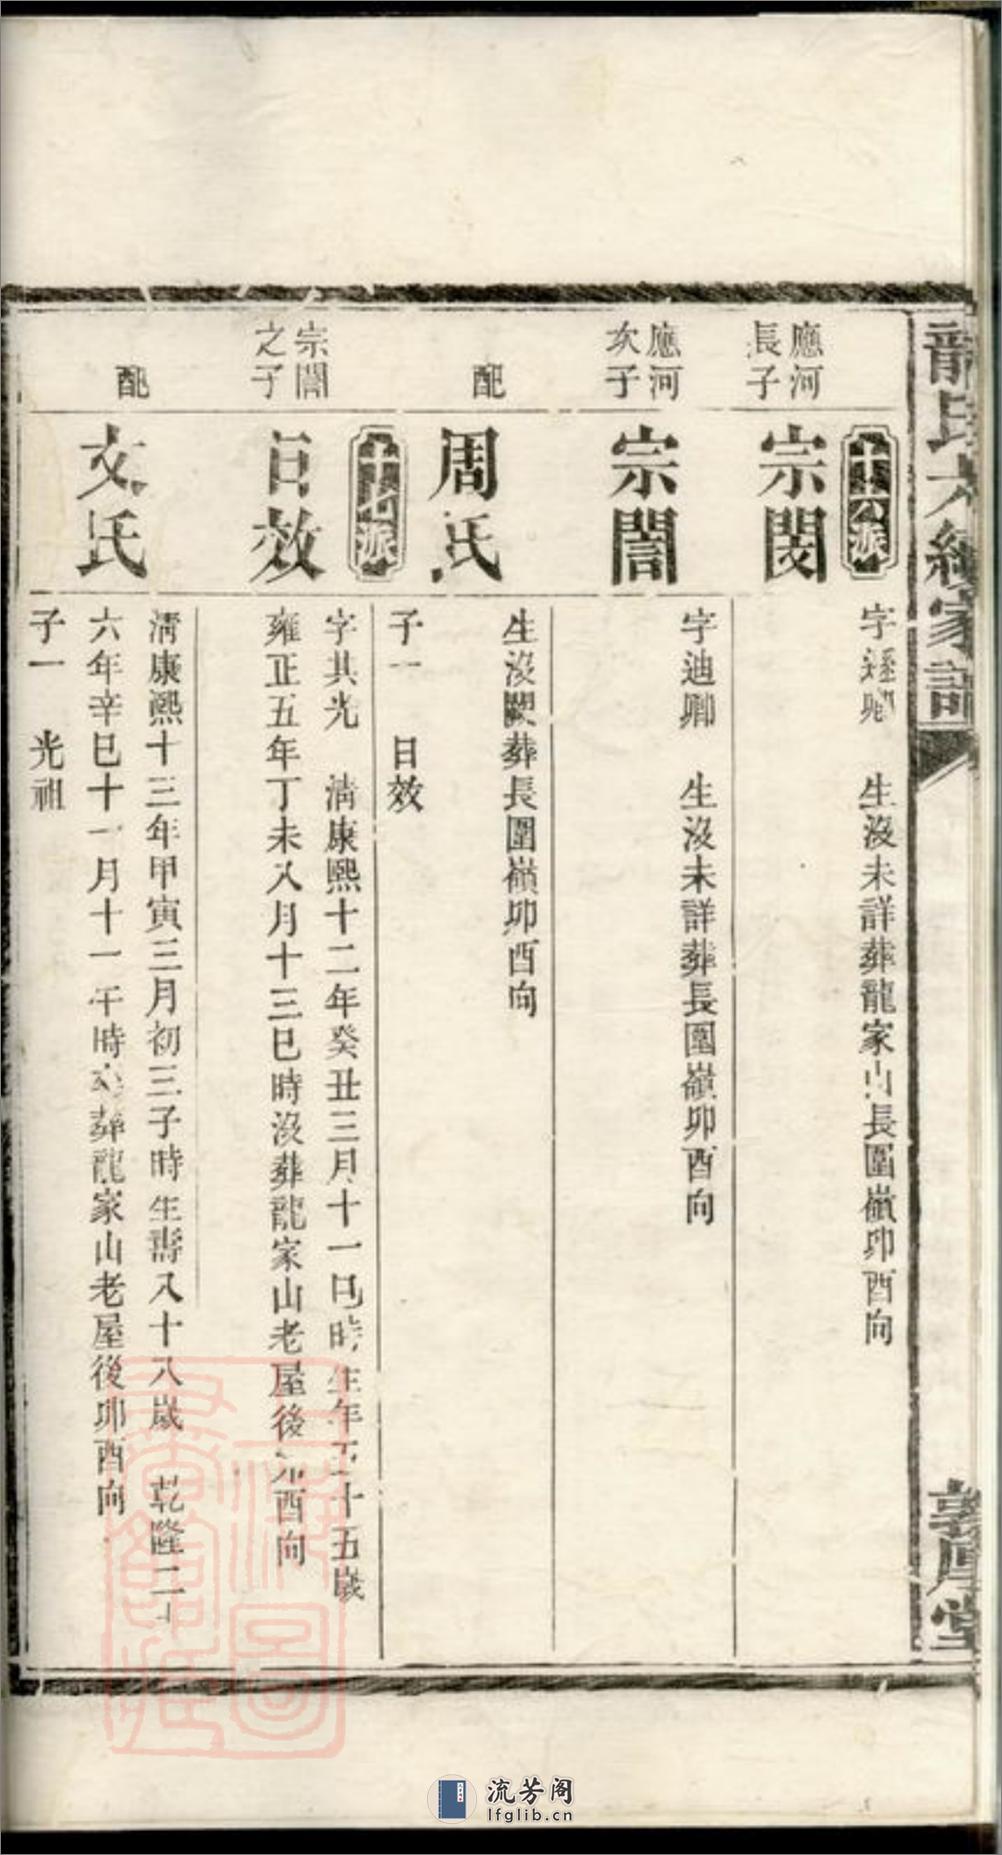 龍氏六續家譜
敦厚堂
派
應河
長子
宗閔
字遜卿　生沒未詳葬龍家山長圍嶺卯酉向
應河
次子
宗誾
字迪卿　生沒未詳葬長圍嶺卯酉向
配
周氏
生沒闕葬長圍嶺卯酉向
子一　日效
派
宗誾
之子
日效
字其光　清康熙十二年癸丑三月十一巳時生年五十五歲
雍正五年丁未八月十三巳時沒葬龍家山老屋後卯酉向
配
文氏
清康熙十三年甲寅三月初三子時生壽八十八歲　乾隆二十
六年辛巳十一月十一午時沒葬龍家山老屋後卯酉向
子一　光祖
流芳阁
lfglib.cn